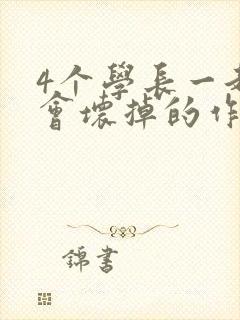 4个學長一
會壞掉的作
錦書